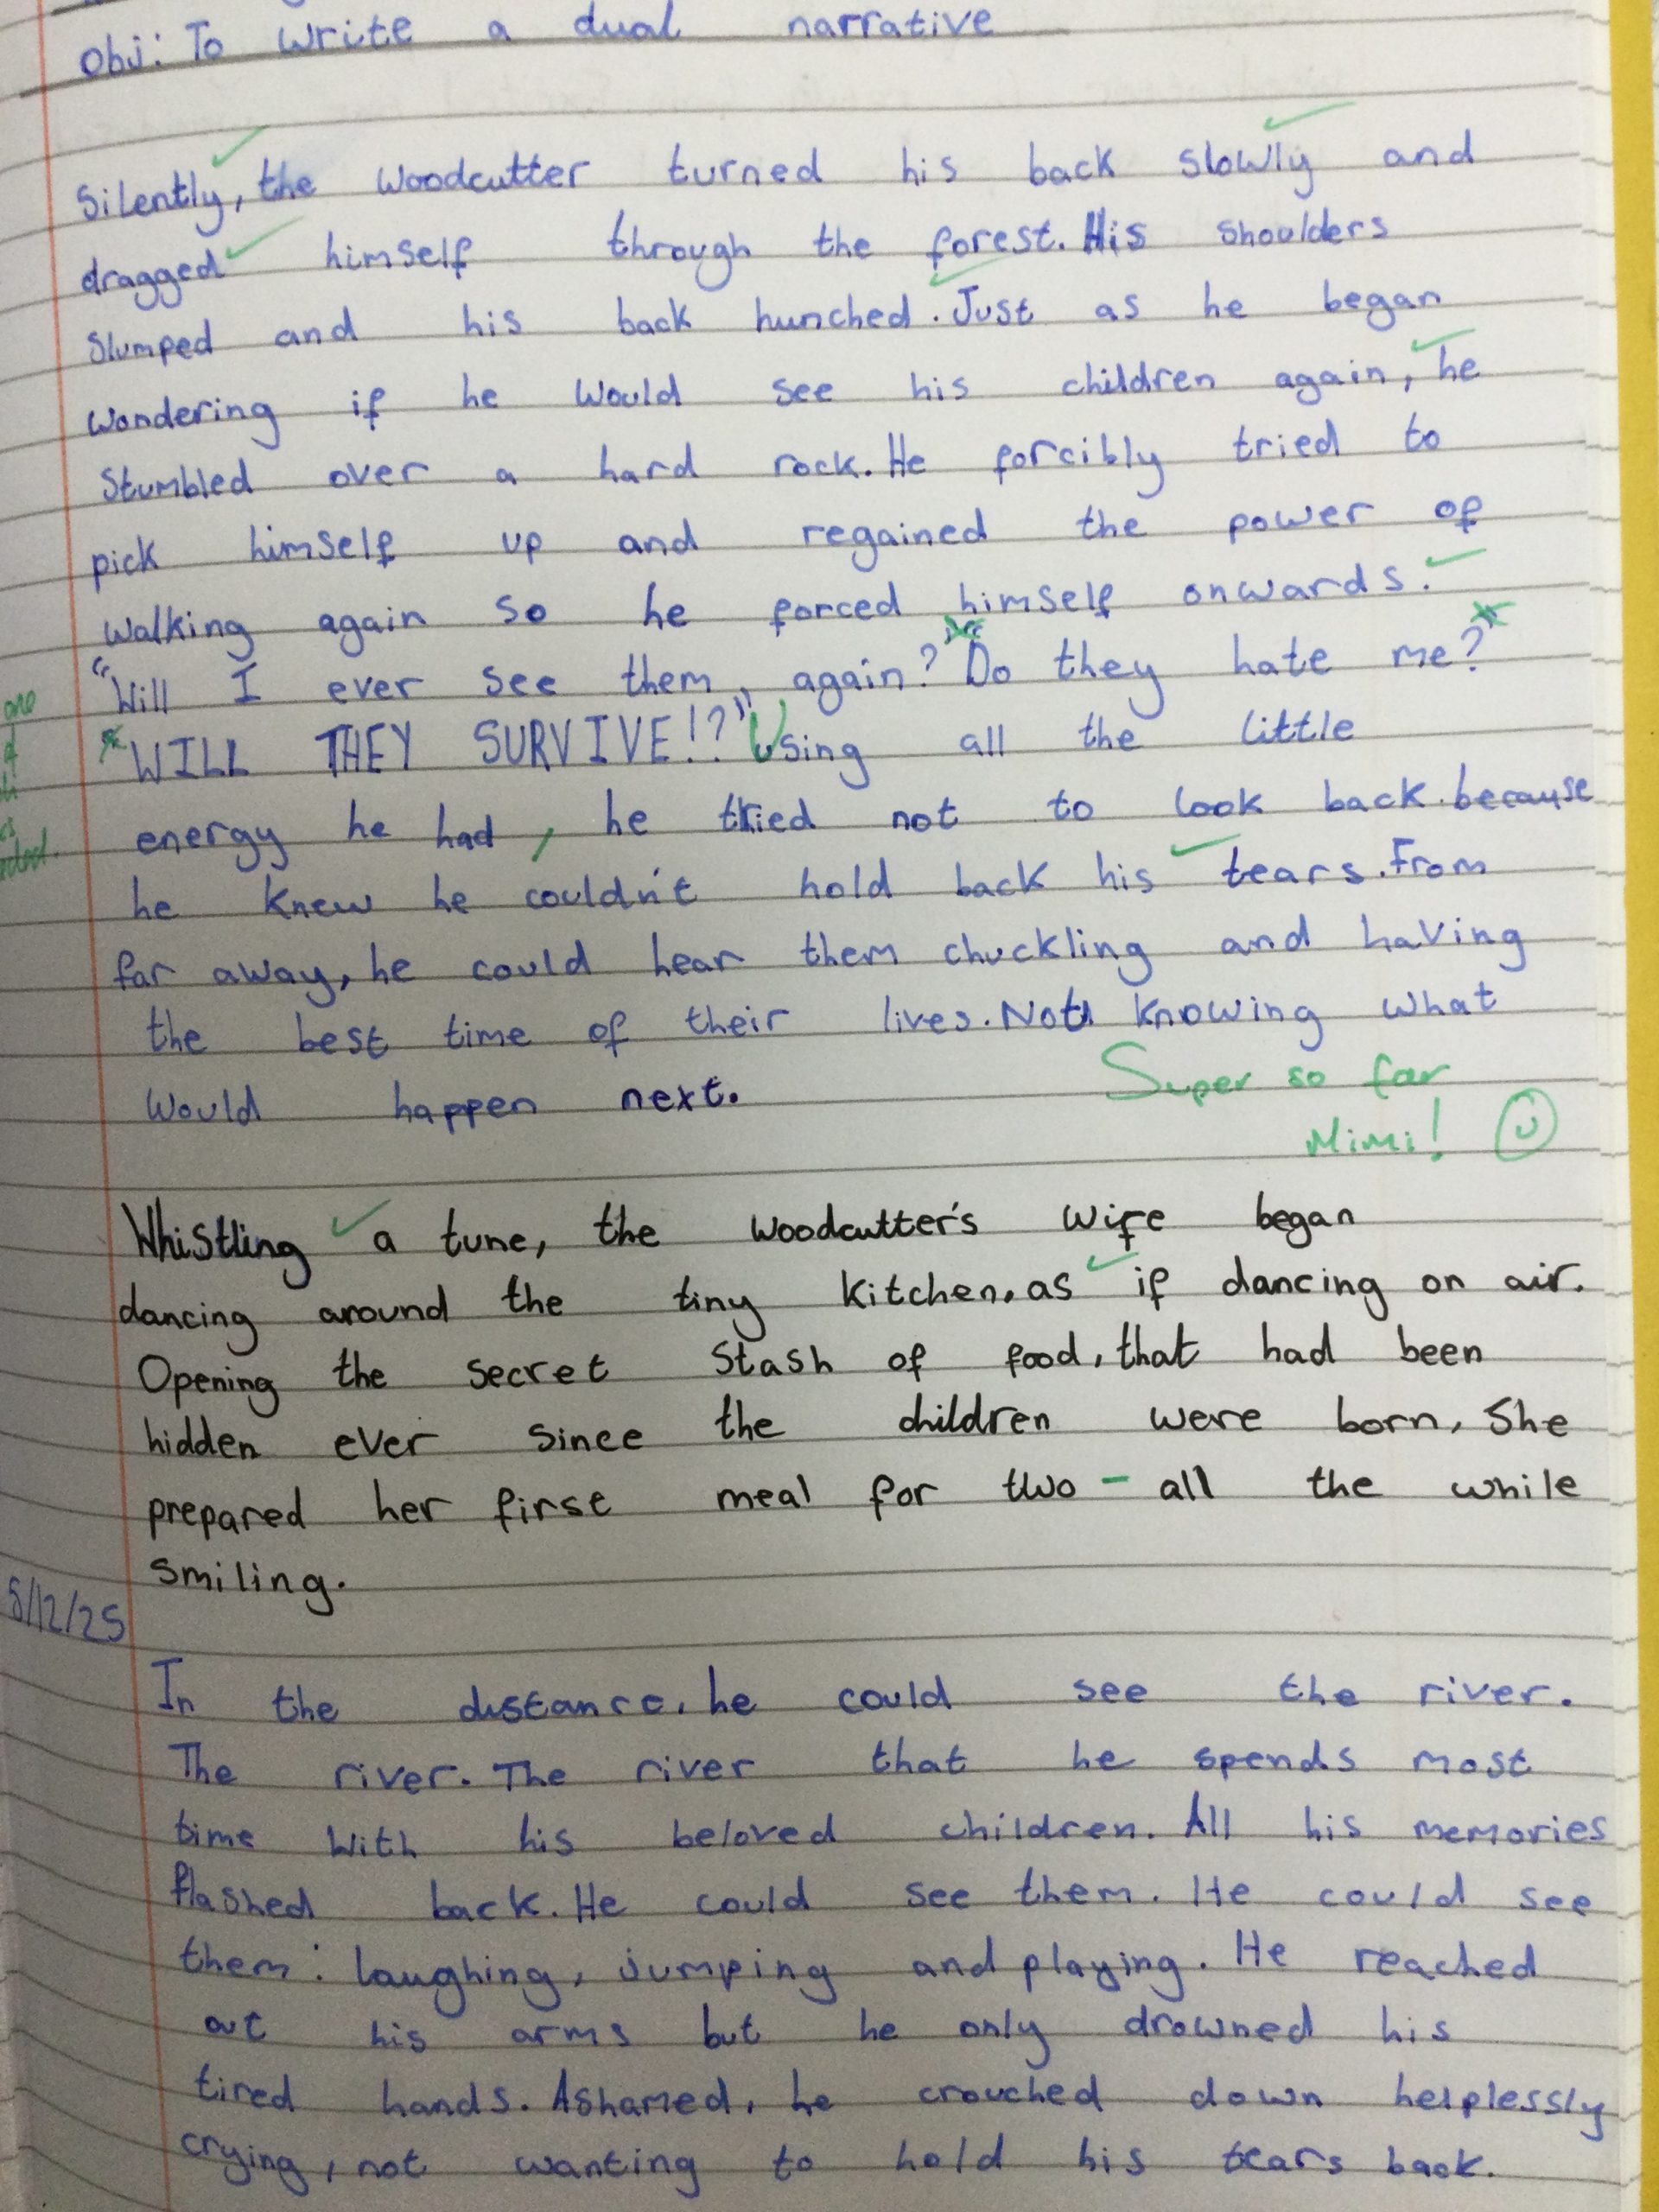 Obj: To write a dual narrative
Silently, the woodcutter turned his back slowly and
dragged himself through the forest. His shoulders
slumped and his back hunched. Just as he began
wondering if he would see his children again, he
stumbled over a hard rock. He forcibly tried to
pick himself up and regained the power of
walking again so he forced himself onwards.
"Will I ever see them, again? Do they hate me?
WILL THEY SURVIVE!?" Using all the little
energy he had, he tried not to look back because
he knew he couldn't hold back his tears. From
far away, he could hear them chuckling and having
the best time of their lives. Not knowing what
would happen next.
Super so far
Mimi!
Whistling a tune, the woodcutter's wife began
dancing around the tiny kitchen, as if dancing on air.
Opening the secret stash of food, that had been
hidden ever since the children were born, She
prepared her first meal for two - all the while
smiling.
5/12/25
In the distance, he could see the river.
The river. The river that he spends most
time with his beloved children. All his memories
flashed back. He could see them. He could see
them: laughing, jumping and playing. He reached
out his arms but he only drowned his
tired hands. Ashamed, he crouched down helplessly
crying, not wanting to hold his tears back.